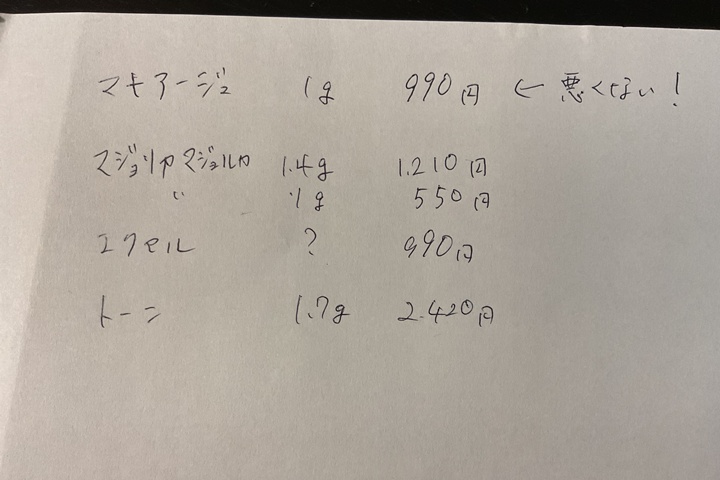 マキアージュ 1g 990円 ← 悪くない!
マジョリカマジョルカ 1.4g 1.210円
〃 1g 550円
エクセル ? 990円
トーン 1.7g 2.420円